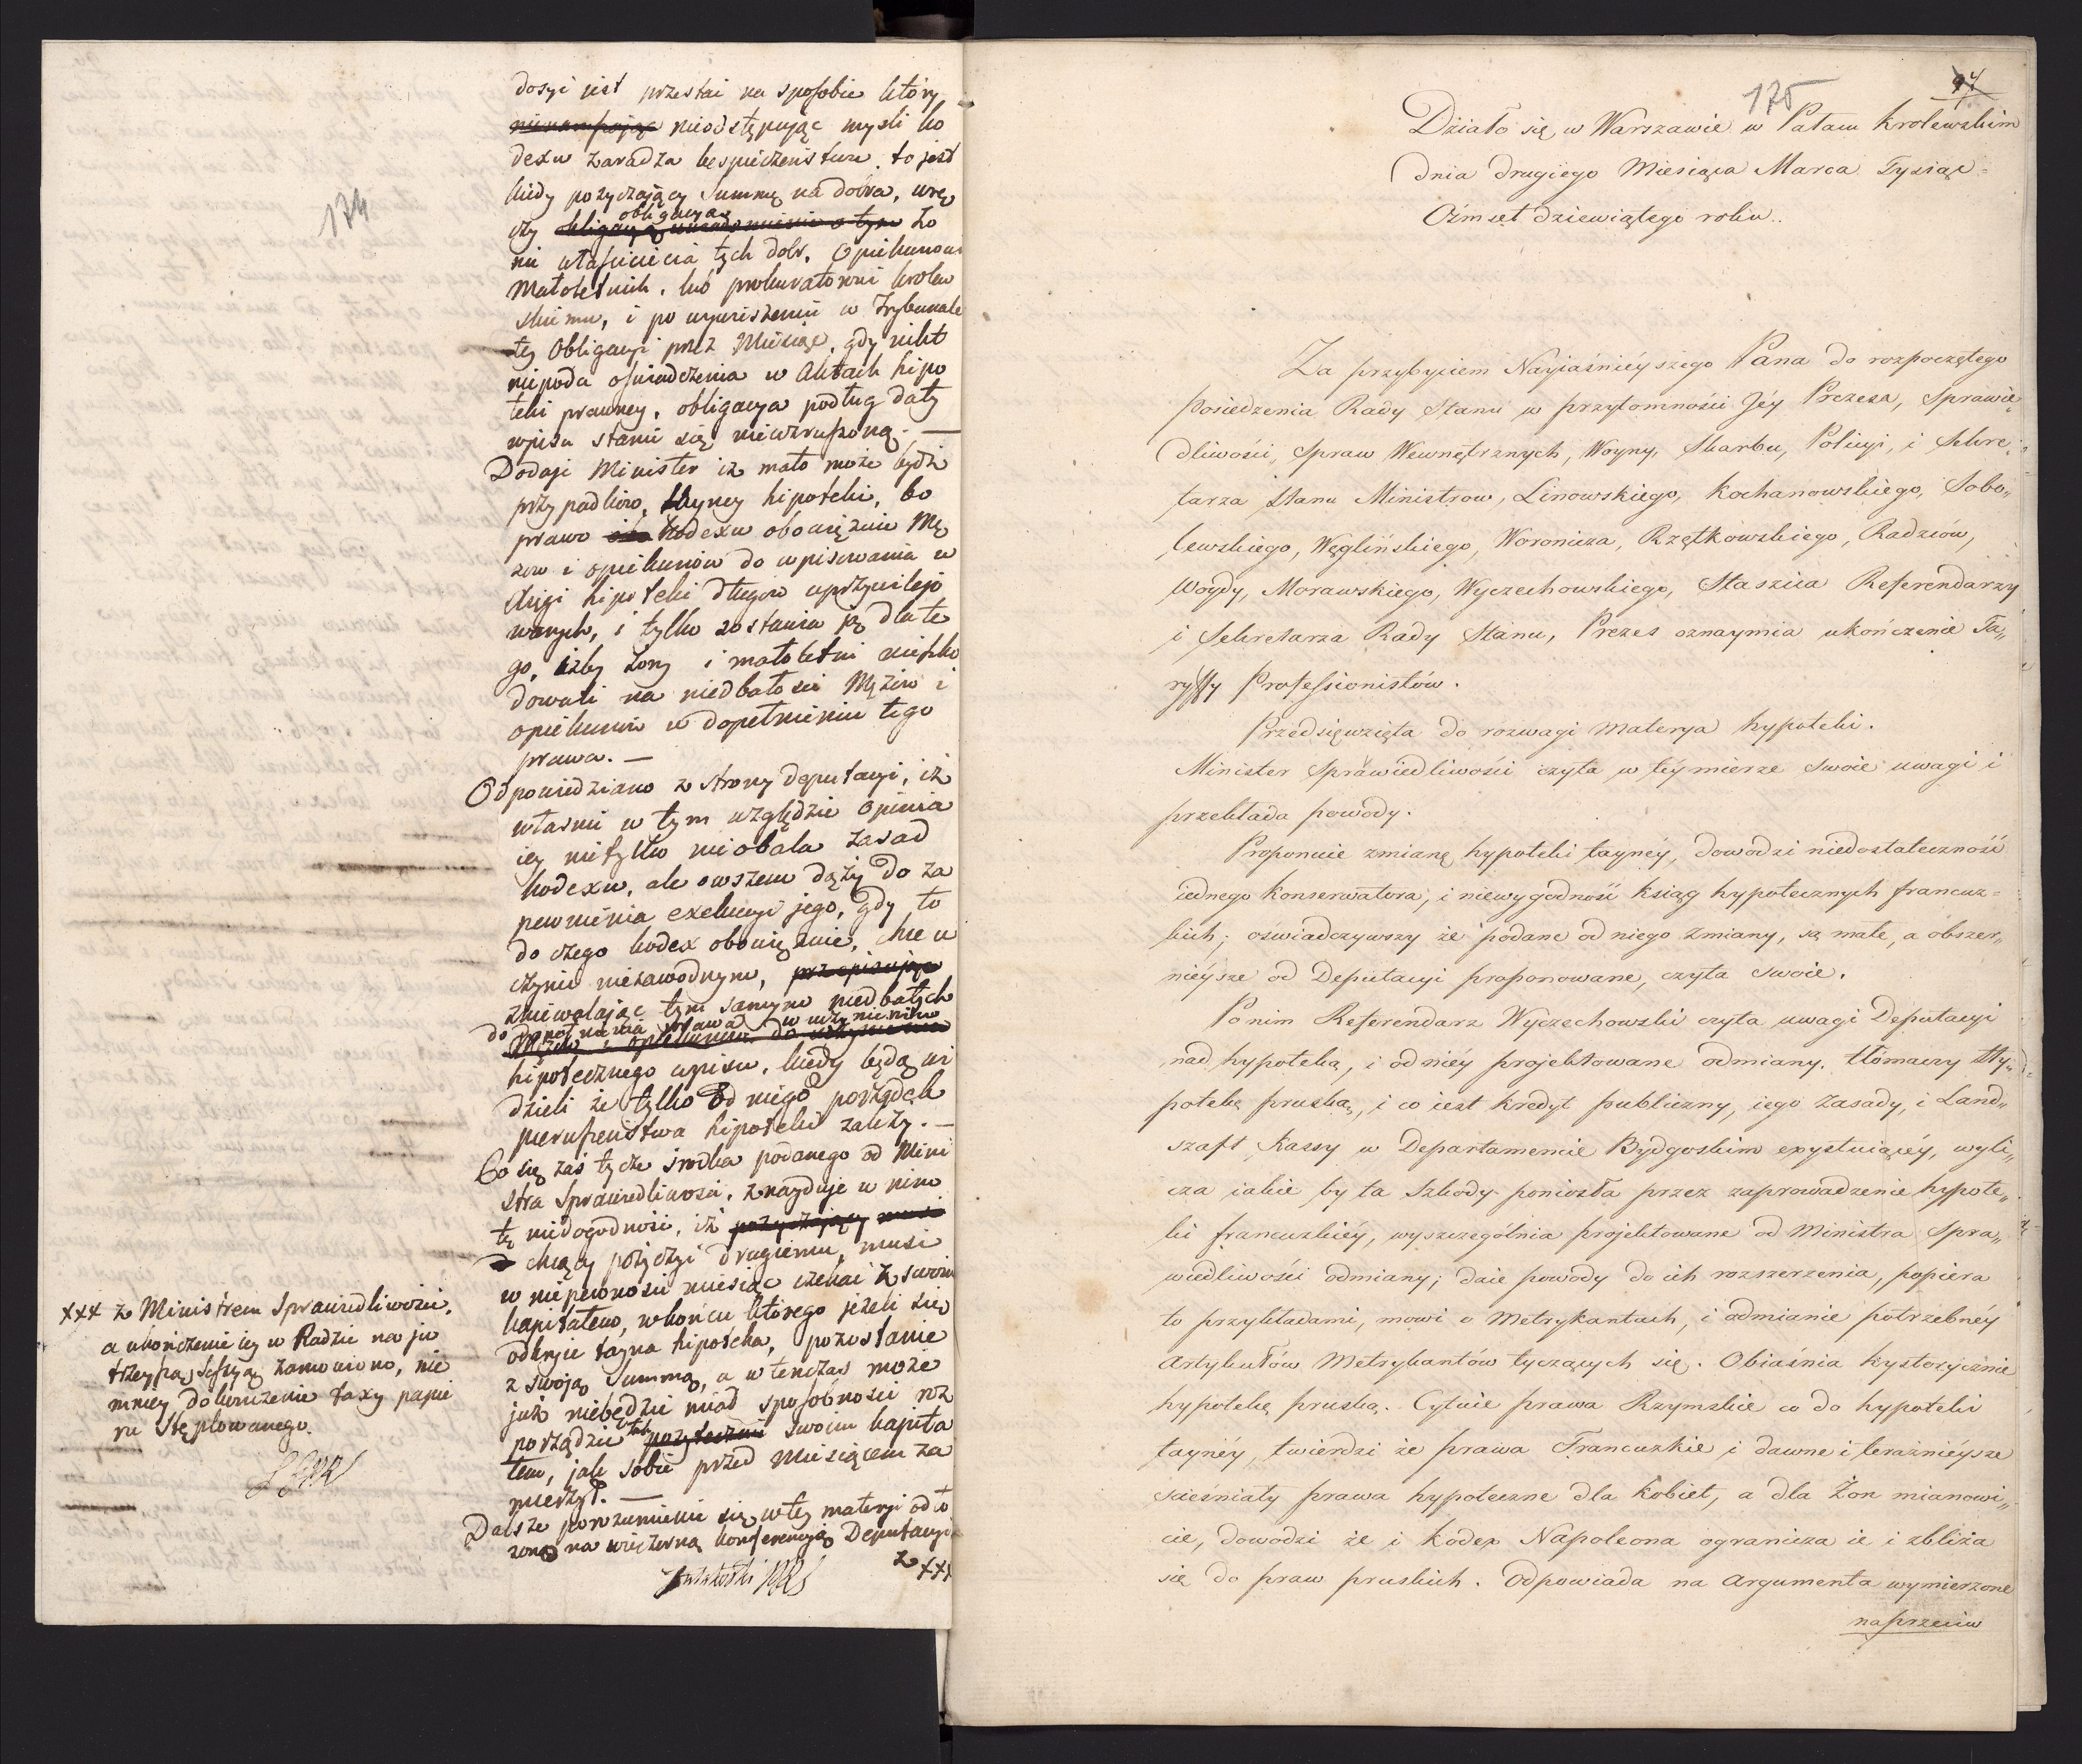 174
dosyć jest przestać na sposobie który
nieodstępując mysli ko
dexu zaradza bespieczeństwu. to jest
kiedy pozyczający Summę na dobra, wrę
czy obligacyą żo
nie własciciela tych dobr, Opiekunowi
Małoletnich, lub prokuratorowi krolew
skiemu, i po wywieszeniu w Trybunale
tey Obligacyi przez Miesiąc, gdy nikt
niepoda oswiadczenia w Aktach hipo
teki prawney, obligacya podług daty
wpisu stanie się niewzruszoną. —
Dodaje Minister iż mało może bydź
przypadkow tayney hipoteki, bo
prawo Kodexu obowiązuie Mę
zow i opiekunów do wpisowania w
xięgi hipoteki długow uprzywilejo
wanych, i tylko zostawia ją dla te
go, iżby żony i małoletni nieszko
dowali na niedbałości Mężow i
opiekunow w dopełnieniu tego
prawa. —
Odpowiedziano z strony Deputacyi, iż
własnie w tym względzie Opinia
iey nietylko nieobala zasad
kodexu, ale owszem dąży do za
pewnienia exekucyi jego, gdy to
do czego kodex obowiązuie, chce u
czynić niezawodnym, przepisując
zniewalając tym samym niedbałych
do dopełnienia prawa w uczynieniu
hipotecznego wpisu, kiedy będą wi
dzieli że tylko od niego porządek
pierwszeństwa hipoteki zależy. —
Co się zaś tycze srodka podanego od Mini
stra Sprawiedliwosci, znayduje w nim
tę niedogodność, iż pozyczający musi
chcący pożyczyć drugiemu, musi
w niepewności miesiąc czekać z swoim
kapitałem, wkońcu którego jeżeli się
odkryje tayna hipoteka, pozostanie
z swoją Summą, a wtenczas może
już niebędzie miał sposobności roz
porządzić tak swoim kapita
łem, jak sobie przed Miesiącem za
mierzył. —
Dalsze porozumienie się w tey materyi odło
zono na wieczorną konferencyą Deputacyi
z xxx
xxx z Ministrem Sprawiedliwosci,
a ukończenie iey w Radzie na ju
trzeyszą Sessyą zamowiono, nie
mniey dokończenie taxy papie
ru Stęplowanego.
175
Działo się w Warszawie w Pałacu Krolewskim
dnia drugiego Miesiąca Marca Tysiąc
Ośmset dziewiątego roku.
Za przybyciem Nayiaśnieyszego Pana do rozpoczętego
posiedzenia Rady Stanu w przytomności Jéy Prezesa, Sprawie„
dliwości, Spraw Wewnętrznych, Woyny, Skarbu, Policyi, i Sekre„
tarza Stanu Ministrow, Linowskiego, Kochanowskiego, Sobo„
lewskiego, Węglińskiego, Woronicza, Rzętkowskiego, Radzców,
Woydy, Morawskiego, Wyczechowskiego, Staszica Referendarzy
i Sekretarza Rady Stanu, Prezes oznaymia ukończenie Ta„
ryffy Professionistów.
Przedsięwzięta do rozwagi Materya hypoteki.
Minister Sprawiedliwości czyta w téymierze swoie uwagi i
przekłada powody.
Proponuie zmianę hypoteki taynéy, dowodzi niedostateczność
iednego Konserwatora, i niewygodność ksiąg hypotecznych francuz=
kich; oświadczywszy że podane od niego zmiany, są małe, a obszer„
nieysze od Deputacyi proponowane, czyta swoie.
Po nim Referendarz Wyczechowski czyta uwagi Deputacyi
nad hypoteką, i od niéy projektowane odmiany, tłómaczy Hy„
potekę pruską, i co iest kredyt publiczny, iego zasady, i Land„
szaft Kassy w Departamencie Bydgoskim exystuiącéy, wyli„
cza iakie by ta szkody poniosła przez zaprowadzenie hypote„
ki francuzkiéy, wyszczególnia projektowane od Ministra Spra„
wiedliwości odmiany; daie powody do ich rozszerzenia, popiera
to przykładami, mowi o Metrykantach, i odmianie potrzebnéy
Artykułów Metrykantów tyczących się. Obiaśnia hystorycznie
hypotekę pruską. Cytuie prawa Rzymskie co do hypoteki
taynéy, twierdzi że prawa Francuzkie i dawne i teraźniéysze
ścieśniały prawa hypoteczne dla kobiet, a dla Żon mianowi„
cie, dowodzi że i Kodex Napoleona ogranicza ie i zbliża
się do praw pruskich. Odpowiada na Argumenta wymierzone
naprzeciw